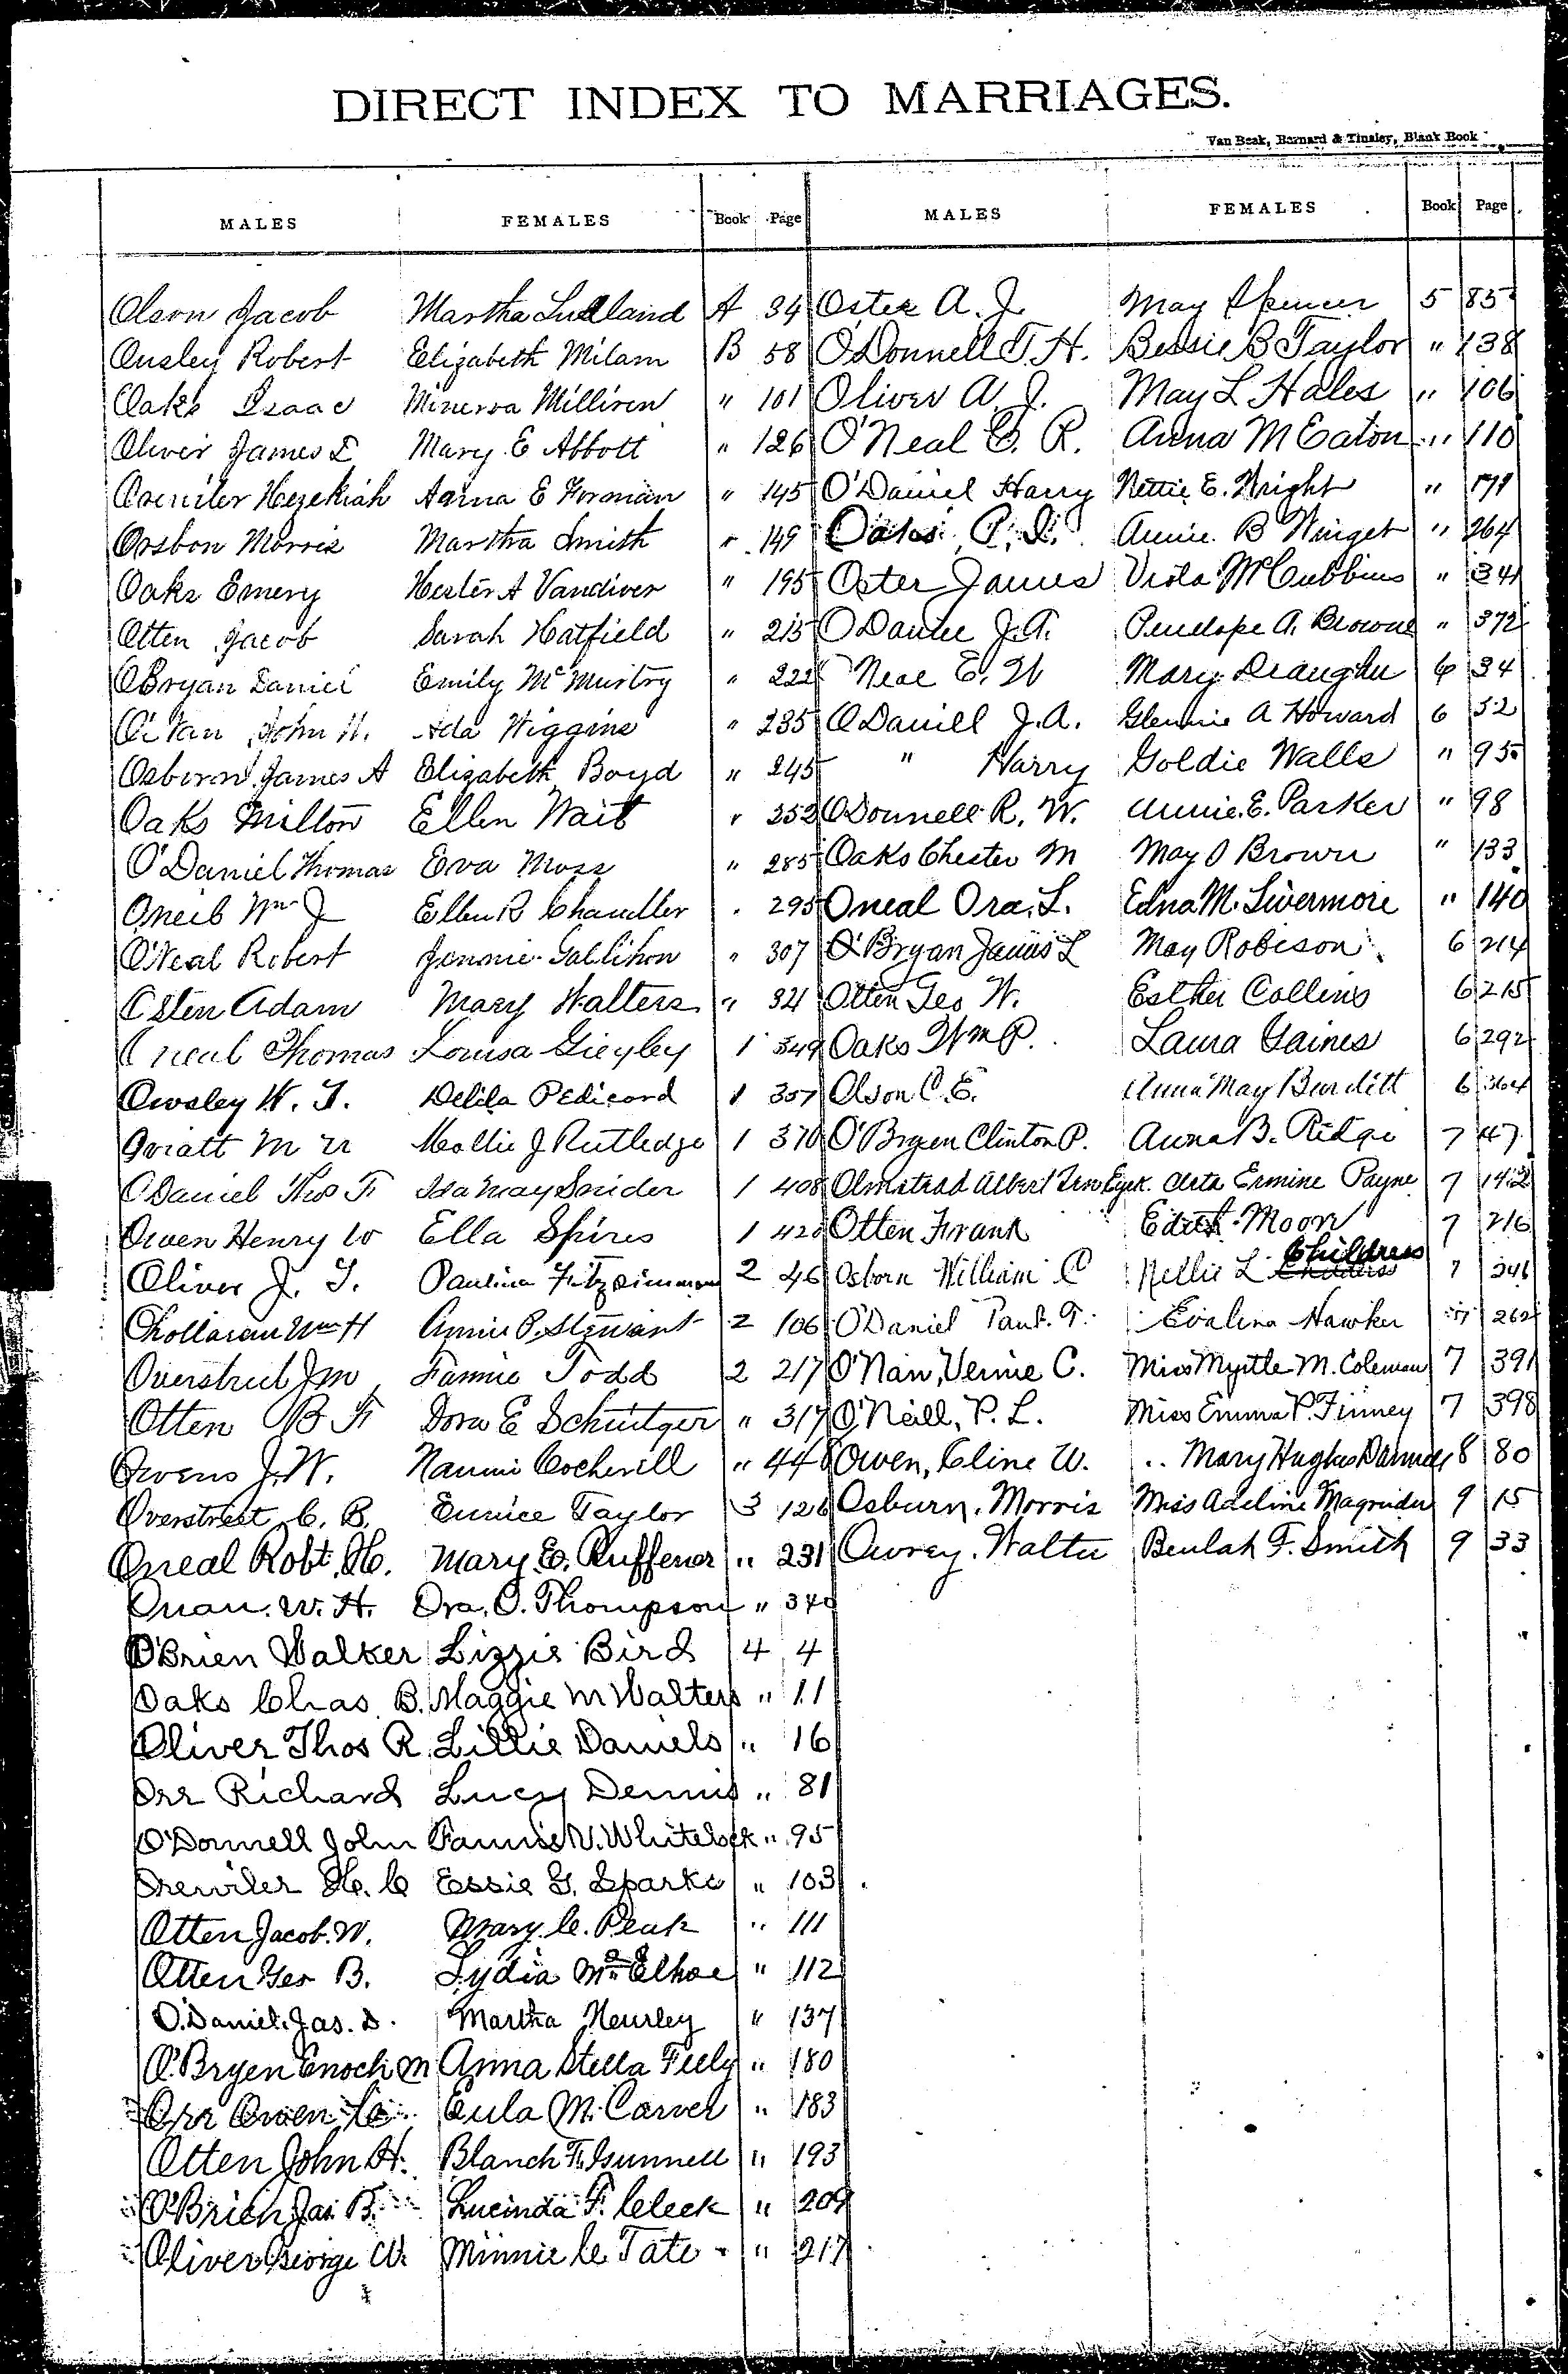 DIRECT INDEX TO MARRIAGES.
Van Beek, Barnard & Tinsley, Blank Book
MALES FEMALES Book Page MALES FEMALES Book Page
Olson Jacob Martha A 34
Ousley Robert Elizabeth Milam B 58
Oaks Isaac Minerva Milliren " 101
Oliver James Mary E Abbott " 126
Hezekiah Anna E Forman " 145
Orsbon Morris Martha Smith " 149
Oaks Emery Hester A Vandiver " 195
Otten Jacob Sarah Hatfield " 215
OBryan Daniel Emily McMurtry " 222
John H. Ada Wiggins " 235
Osborn James A Elizabeth Boyd " 245
Oaks Milton Ellen Wait " 252
O'Daniel Thomas Eva Moss " 285
Oneib Wm J Ellen R Chandler " 295
O'Neal Robert Jennie " 307
Osten Adam Mary Walters " 321
Oneal Thomas Louisa 1 349
Owsley W. T. Delila Pedicord 1 357
Oviatt M Mollie J Rutledge 1 370
ODaniel Thos F Ida May Snider 1 408
Owen Henry W Ella Spires 1
Oliver J. T. Paulina Fitzsimmons 2 46
Wm H Annie P. Stewart 2 106
Overstreet J M Fannie Todd 2 217
Otten B F Dora E " 317
Owens J. W. Nannie Cockerill " 448
Overstreet C. B. Eunice Taylor 3 126
Oneal Robt. H. Mary E. Ruffener " 231
W. H. Ora. O. Thompson " 340
O'Brien Walker Lizzie Bird 4 4
Oaks Chas. B. Maggie M Walters " 11
Oliver Thos R. Lillie Daniels " 16
Orr Richard Lucy Dennis " 81
O'Donnell John Fannie V. Whitelock " 95
Orewiler H. C Essie G. Sparks " 103
Otten Jacob. W. Mary C. Peak " 111
Otten Geo B. Lydia McElhoe " 112
O.Daniel. Jas. D. Martha " 137
O'Bryen Enoch M Anna Stella Feely " 180
Orr Owen C. Eula M. Carver " 183
Otten John H. Blanch F. Gunnell " 193
O'Brien Jas B. Lucinda F. Cleek " 209
Oliver George W. Minnie C. Tate " 217
Oster A. J. May Spencer 5 85
O'Donnell T. H. Bessie B Taylor " 138
Oliver A. J. May L Hales " 106
O'Neal C. R. Anna M Eaton " 110
O'Daniel Harry Nettie E. Wright "
Oaks, P. I. Annie B Winget " 264
Oster James Viola McCubbins " 341
J. A. Penelope A. Browne " 372
Neal E. W Mary Draughn 6 34
O'Daniell J. A. Glennie A Howard 6 52
" Harry Goldie Walls " 95
ODonnell R. W. Annie E. Parker " 98
Oaks Chester M May O Brown " 133
Oneal Ora. L. Edna M. Livermore " 140
O'Bryan James L May Robison 6 214
Otten Geo W. Esther Collins 6 215
Oaks Wm P. Laura Gaines 6 292
Olson C. E. Anna May Burditt 6 364
O'Bryen Clinton P. Anna B. Ridge 7 47
Olmstead Albert Ten Eyck. Cleta Ermine Payne 7 142
Otten Frank Edith Moon 7 216
Osborn William C Nellie L Childress 7 246
O'Daniel Paul. T. Evalena Hawker 7 262
O'Nan, Vernie C. Miss Myrtle M. Coleman 7 391
O'Neill, P. L. Miss Emma P. Finney 7 398
Owen, Cline W. " Mary Hughes 8 80
Osburn, Morris Miss Adeline Magruder 9 15
Owrey. Walter Beulah F. Smith 9 33